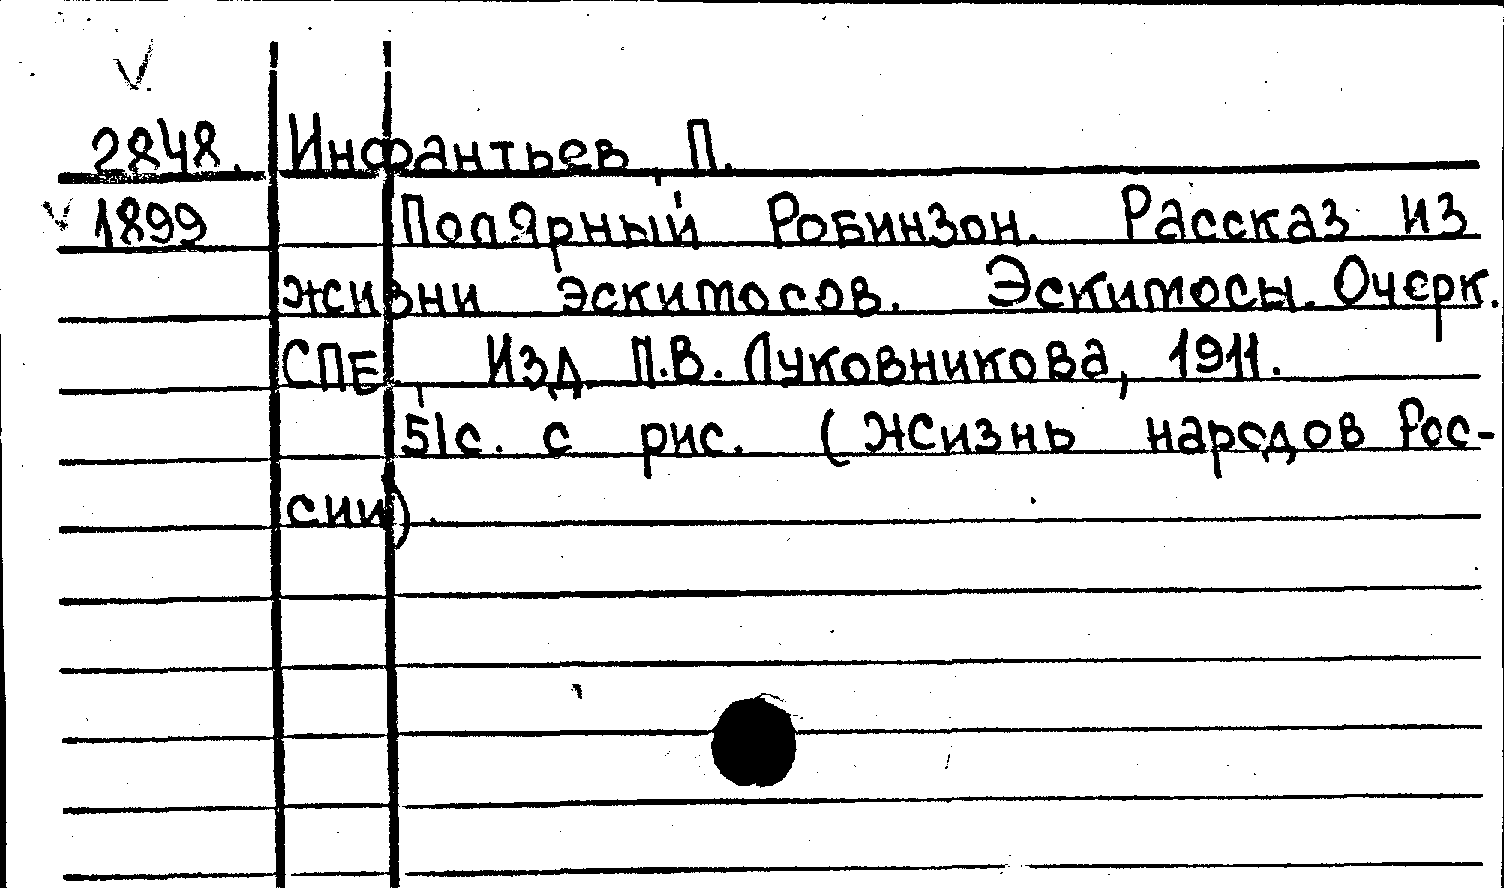 2848. Инфантьев, П.
1899 Полярный Робинзон. Рассказ из
жизни эскимосов. Эскимосы. Очерк.
СПБ, Изд. П.В. Луковникова, 1911.
51с. с рис. (Жизнь народов Рос-
сии).